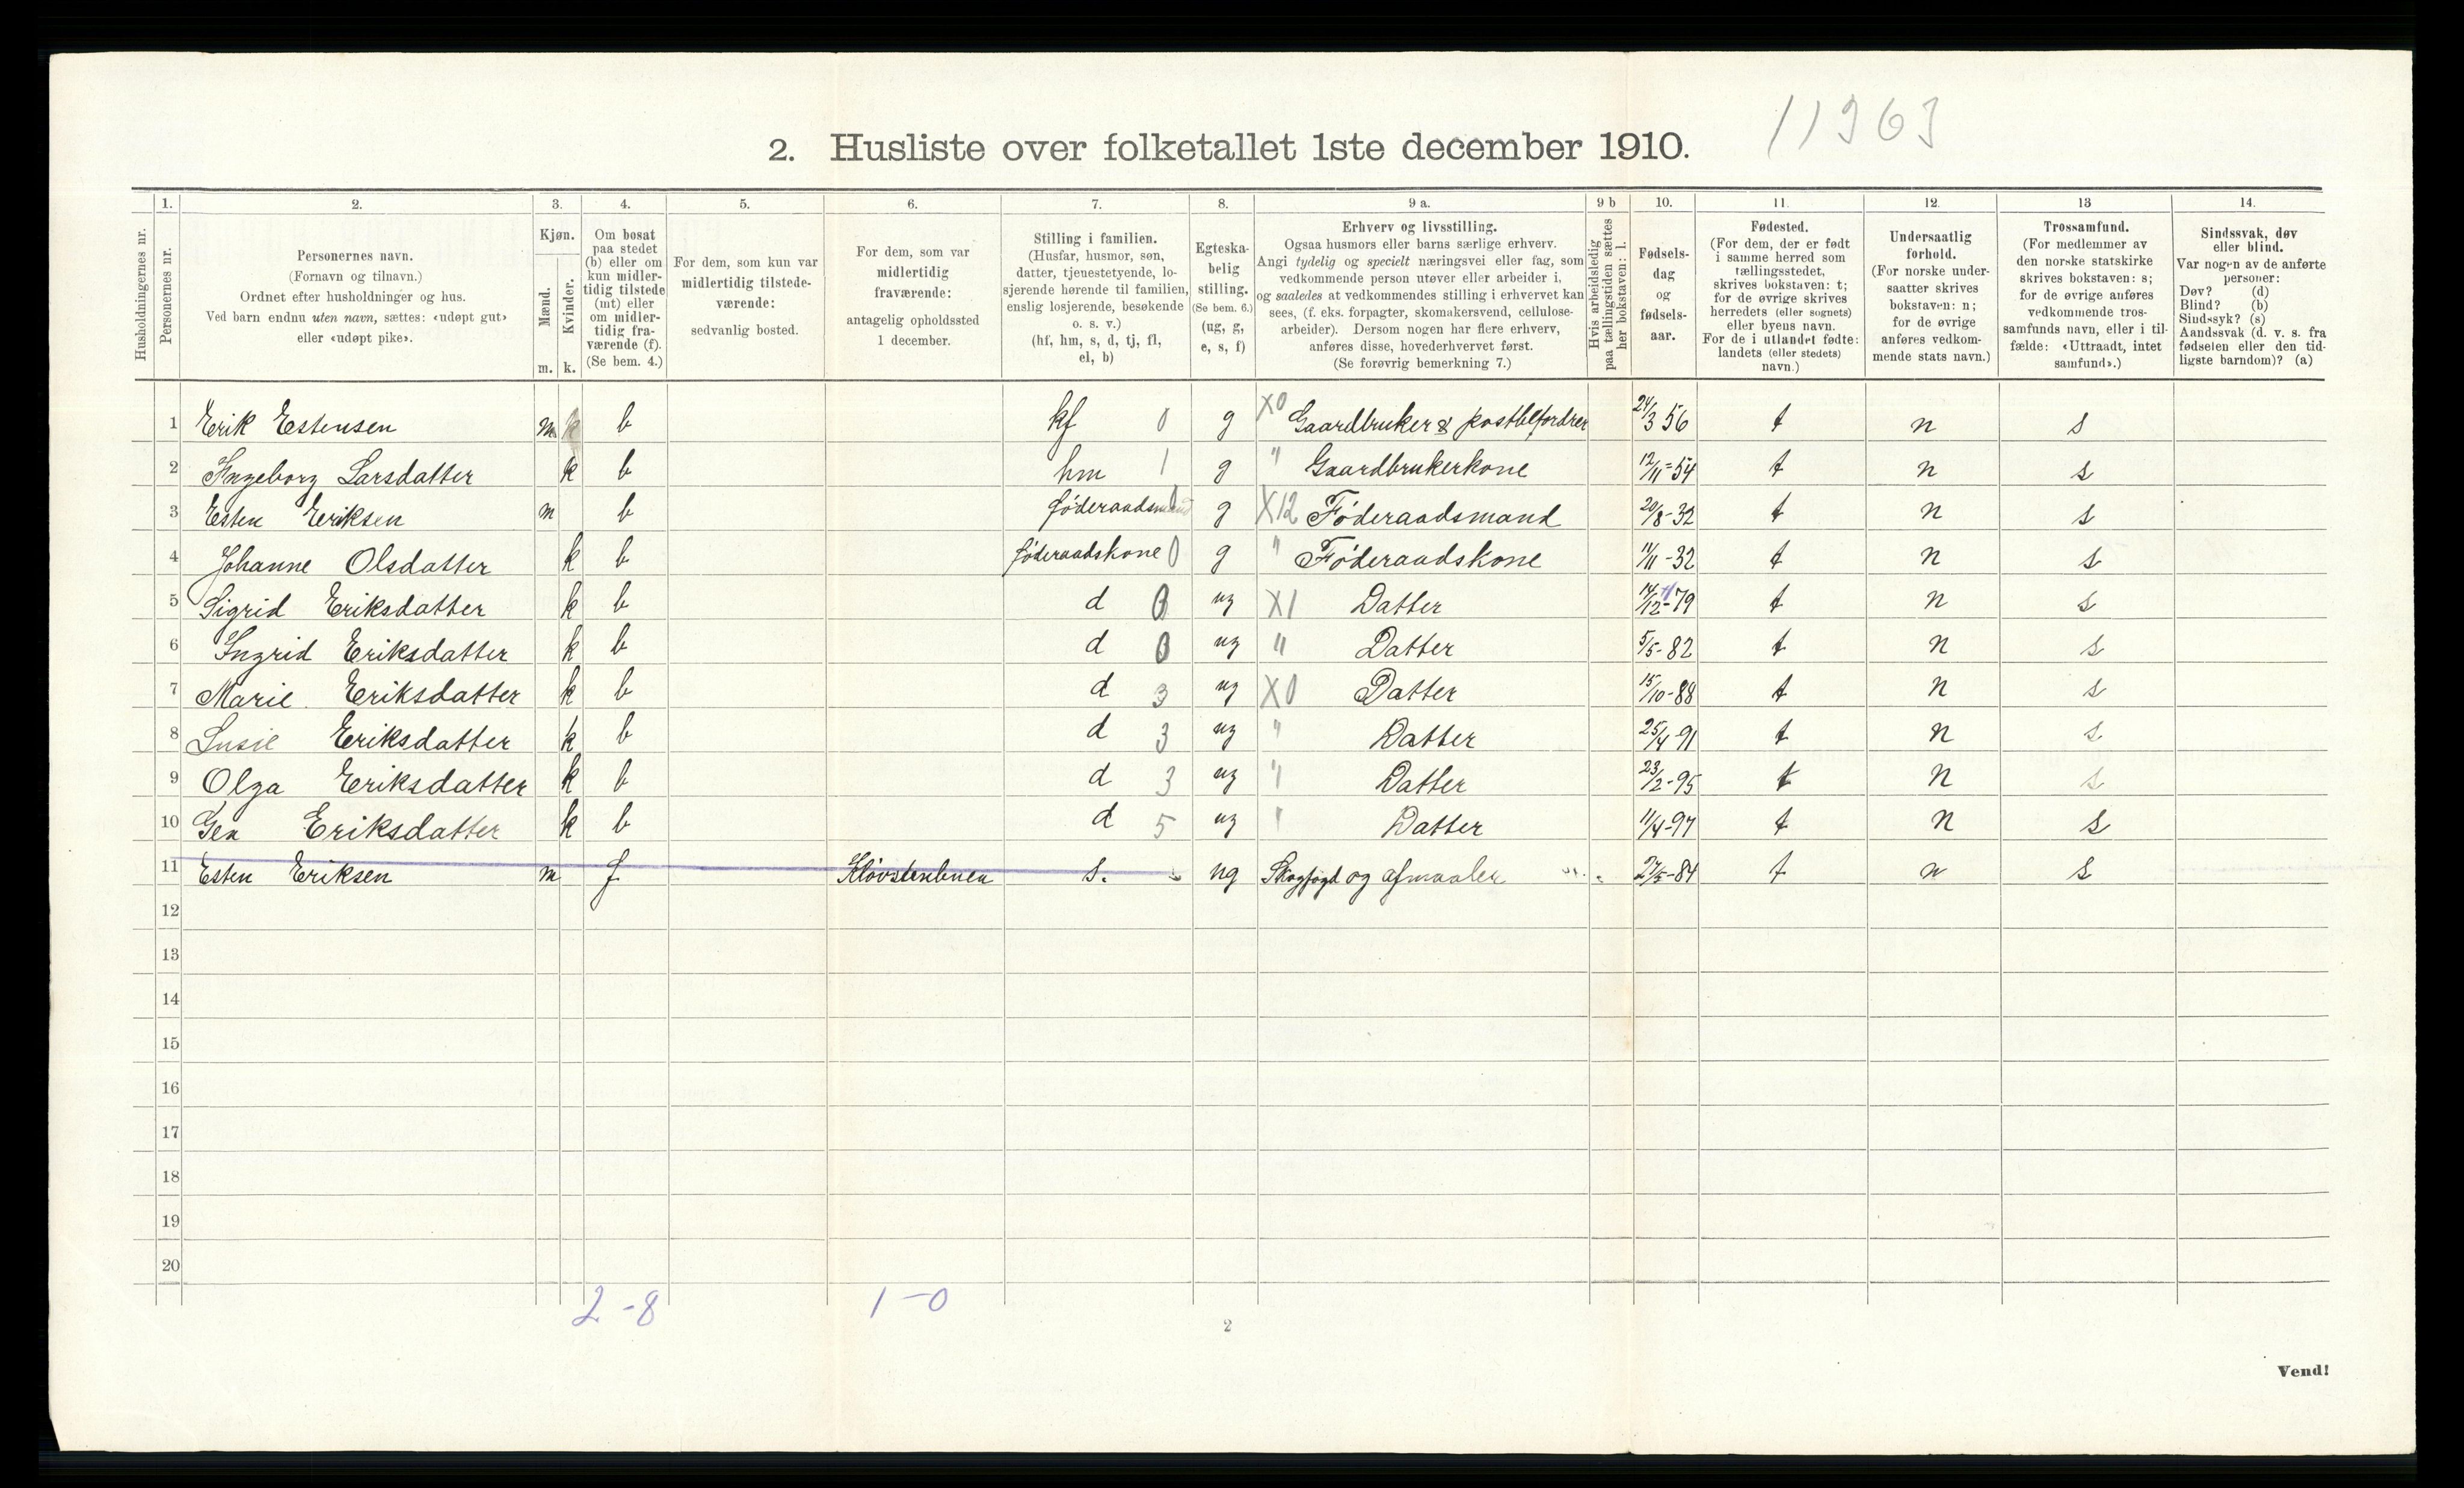 11363
2. Husliste over folketallet 1ste december 1910.
Husholdningernes nr.
1. 2. 3. 4. 5. 6. 7. 8. 9 a. 9 b 10. 11. 12. 13 14.
Personernes nr.
Personernes navn.
(Fornavn og tilnavn.)
Ordnet efter husholdninger og hus.
Ved barn endnu uten navn, sættes: «udøpt gut»
eller «udøpt pike».
Kjøn.
Mænd.
Kvinder.
m. k.
Om bosat
paa stedet
(b) eller om
kun midler-
tidig tilstede
(mt) eller
om midler-
tidig fra-
værende (f).
(Se bem. 4.)
For dem, som kun var
midlertidig tilstede-
værende:
sedvanlig bosted.
For dem, som var
midlertidig
fraværende:
antagelig opholdssted
1 december.
Stilling i familien.
(Husfar, husmor, søn,
datter, tjenestetyende, lo-
sjerende hørende til familien,
enslig losjerende, besøkende
o. s. v.)
(hf, hm, s, d, tj, fl,
el, b)
Egteska-
belig
stilling.
(Se bem. 6.)
(ug, g,
e, s, f)
Erhverv og livsstilling.
Ogsaa husmors eller barns særlige erhverv.
Angi tydelig og specielt næringsvei eller fag, som
vedkommende person utøver eller arbeider i,
og saaledes at vedkommendes stilling i erhvervet kan
sees, (f. eks. forpagter, skomakersvend, cellulose-
arbeider). Dersom nogen har flere erhverv,
anføres disse, hovederhvervet først.
(Se forøvrig bemerkning 7.)
Hvis arbeidsledig
paa tællingstiden sættes
her bokstaven: l.
Fødsels-
dag
og
fødsels-
aar.
Fødested.
(For dem, der er født
i samme herred som
tællingsstedet,
skrives bokstaven: t;
for de øvrige skrives
herredets (eller sognets)
eller byens navn.
For de i utlandet fødte:
landets (eller stedets)
navn.)
Undersaatlig
forhold.
(For norske under-
saatter skrives
bokstaven: n;
for de øvrige
anføres vedkom-
mende stats navn.)
Trossamfund.
(For medlemmer av
den norske statskirke
skrives bokstaven: s;
for de øvrige anføres
vedkommende tros-
samfunds navn, eller i til-
fælde: «Uttraadt, intet
samfund».)
Sindssvak, døv
eller blind.
Var nogen av de anførte
personer:
Døv? (d)
Blind? (b)
Sindssyk? (s)
Aandssvak (d. v. s. fra
fødselen eller den tid-
ligste barndom)? (a)
1 Erik Estensen m k b hf 0 g X0 Gaardbruker & postbefordrer 24/3 56 t n s
2 Ingeborg Larsdatter k b hm 1 g " Gaardbrukerkone 12/11-54 t n s
3 Esten Eriksen m b føderaadsmand g X12 Føderaadsmand 20/8-32 t n s
4 Johanne Olsdatter k b føderaadskone 0 g " Føderaadskone 11/11-32 t n s
5 Sigrid Eriksdatter k b d 0 ug X1 Datter 14/12-79 t n s
6 Ingrid Eriksdatter k b d 0 ug " Datter 5/5-82 t n s
7 Marie Eriksdatter k b d 3 ug X0 Datter 15/10-88 t n s
8 Lusie Eriksdatter k b d 3 ug " Datter 25/4-91 t n s
9 Olga Eriksdatter k b d 3 ug " Datter 23/2-95 t n s
10 Gea Eriksdatter k b d 5 ug " Datter 11/4-97 t n s
11 Esten Eriksen m f s. ug Skogfogd og afmaaler 27/5-84 t n s
12
13
14
15
16
17
18
19
20
2-8 1-0
2
Vend!